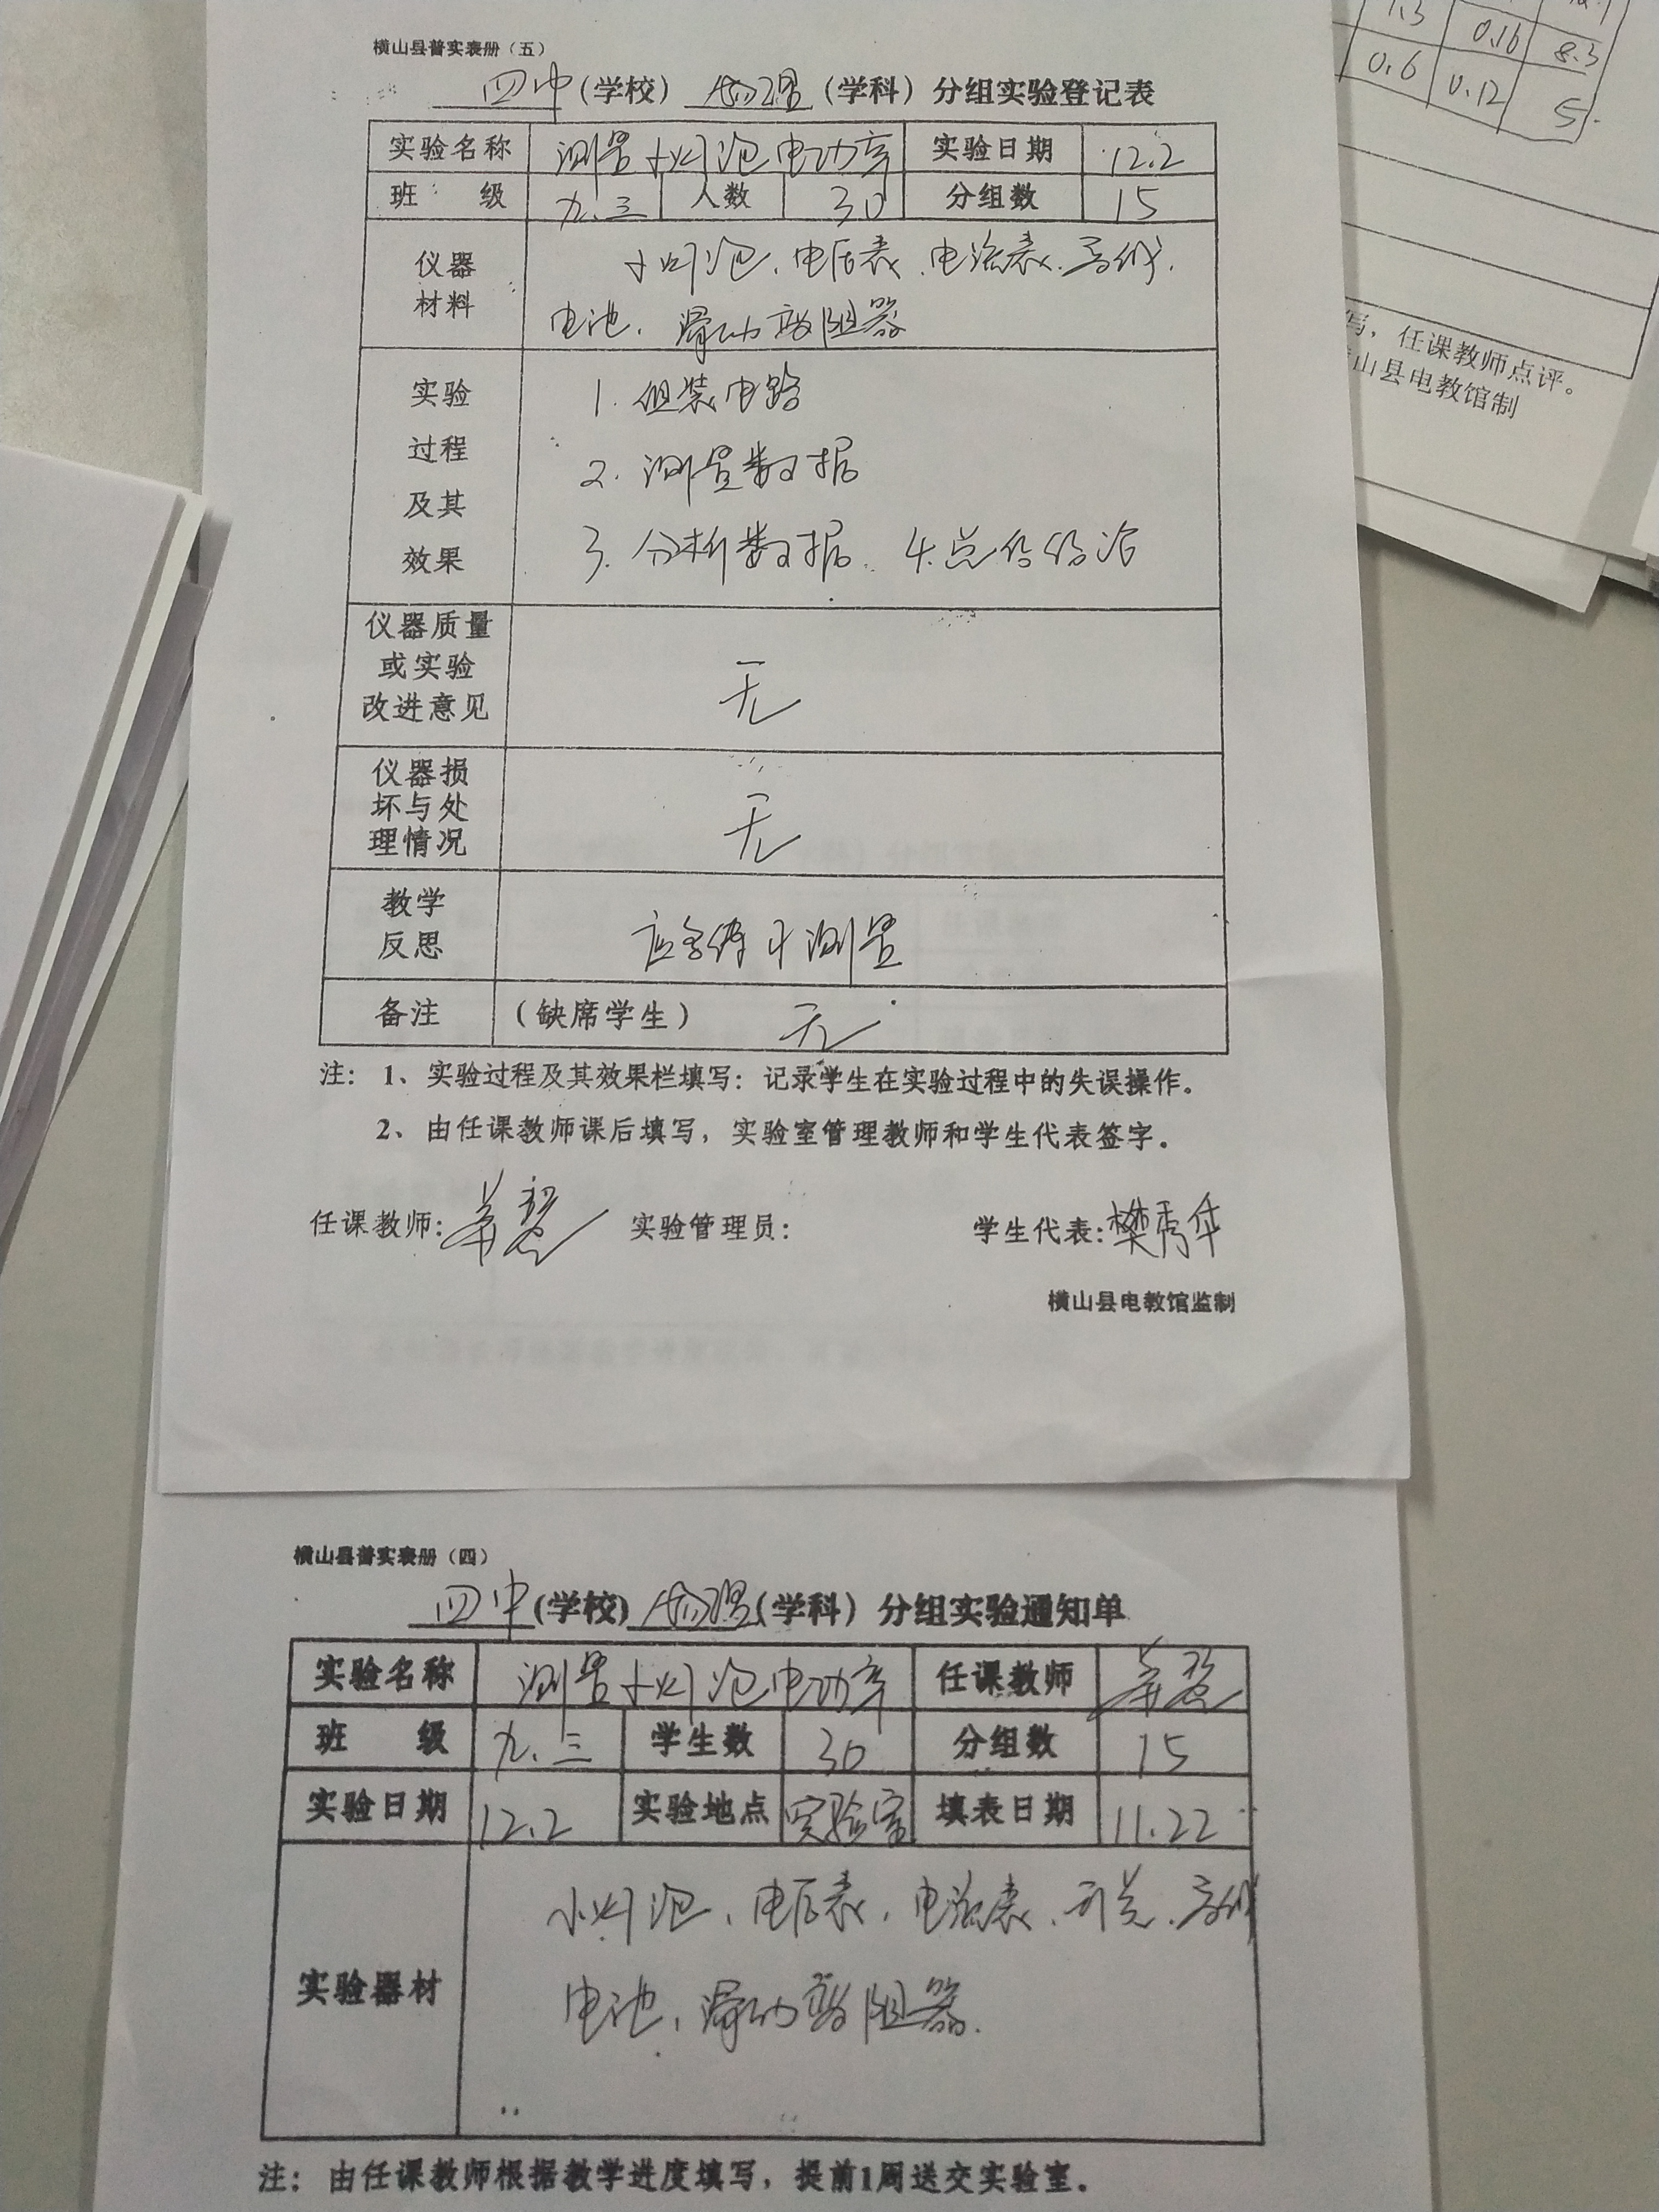 横山县普实表册（五）
四中（学校）物理（学科）分组实验登记表
实验名称 测量小灯泡电功率 实验日期 12.2
班 级 九.三 人数 30 分组数 15
仪器材料 小灯泡、电压表、电流表、导线、
电池、滑动变阻器
实验过程及其效果 1. 组装电路
2. 测量数据
3. 分析数据 4.总结结论
仪器质量或实验改进意见 无
仪器损坏与处理情况 无
教学反思 测量
备注 （缺席学生） 无
注：1、实验过程及其效果栏填写：记录学生在实验过程中的失误操作。
2、由任课教师课后填写，实验室管理教师和学生代表签字。
任课教师： 实验管理员： 学生代表：樊秀华
横山县电教馆监制
横山县普实表册（四）
四中(学校)物理(学科）分组实验通知单
实验名称 测量小灯泡电功率 任课教师
班 级 九.三 学生数 30 分组数 15
实验日期 12.2 实验地点 实验室 填表日期 11.22
实验器材 小灯泡、电压表、电流表、开关、导线
电池、滑动变阻器.
注：由任课教师根据教学进度填写，提前1周送交实验室。
1.3 0.16 8.3
0.6 0.12 5.
写，任课教师点评。
山县电教馆制